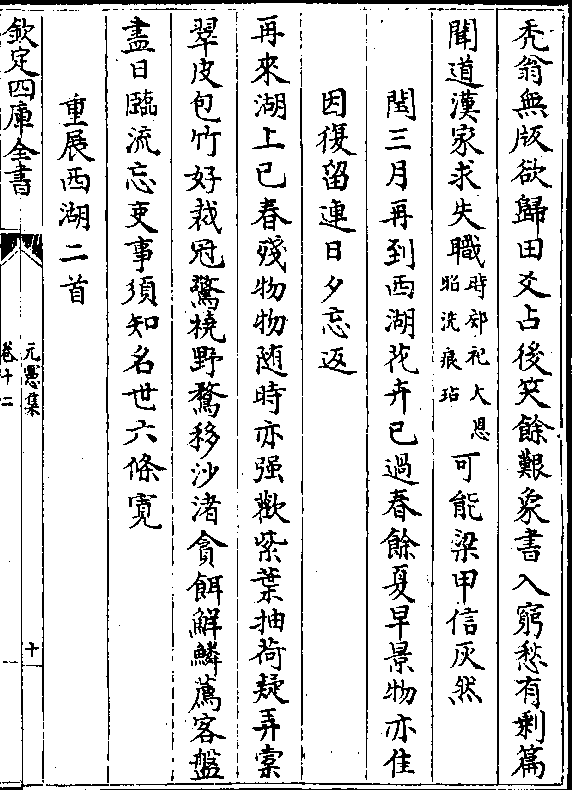 禿翁無版欲歸田爻占後笑餘艱象書入窮愁有剩篇
聞道漢家求失職時郊祀大恩昭洗痕玷可能梁甲信灰然
閏三月再到西湖花卉已過春餘夏早景物亦佳
因復留連日夕忘返
再來湖上已春殘物物随時亦强歡紫葉抽荷疑弄槖
翠皮包竹好裁冠驚橈野鶩移沙渚貪餌鮮鱗薦客盤
盡日臨流忘吏事須知名世六條寛
重展西湖二首
欽定四庫全書
元憲集
卷十二
十